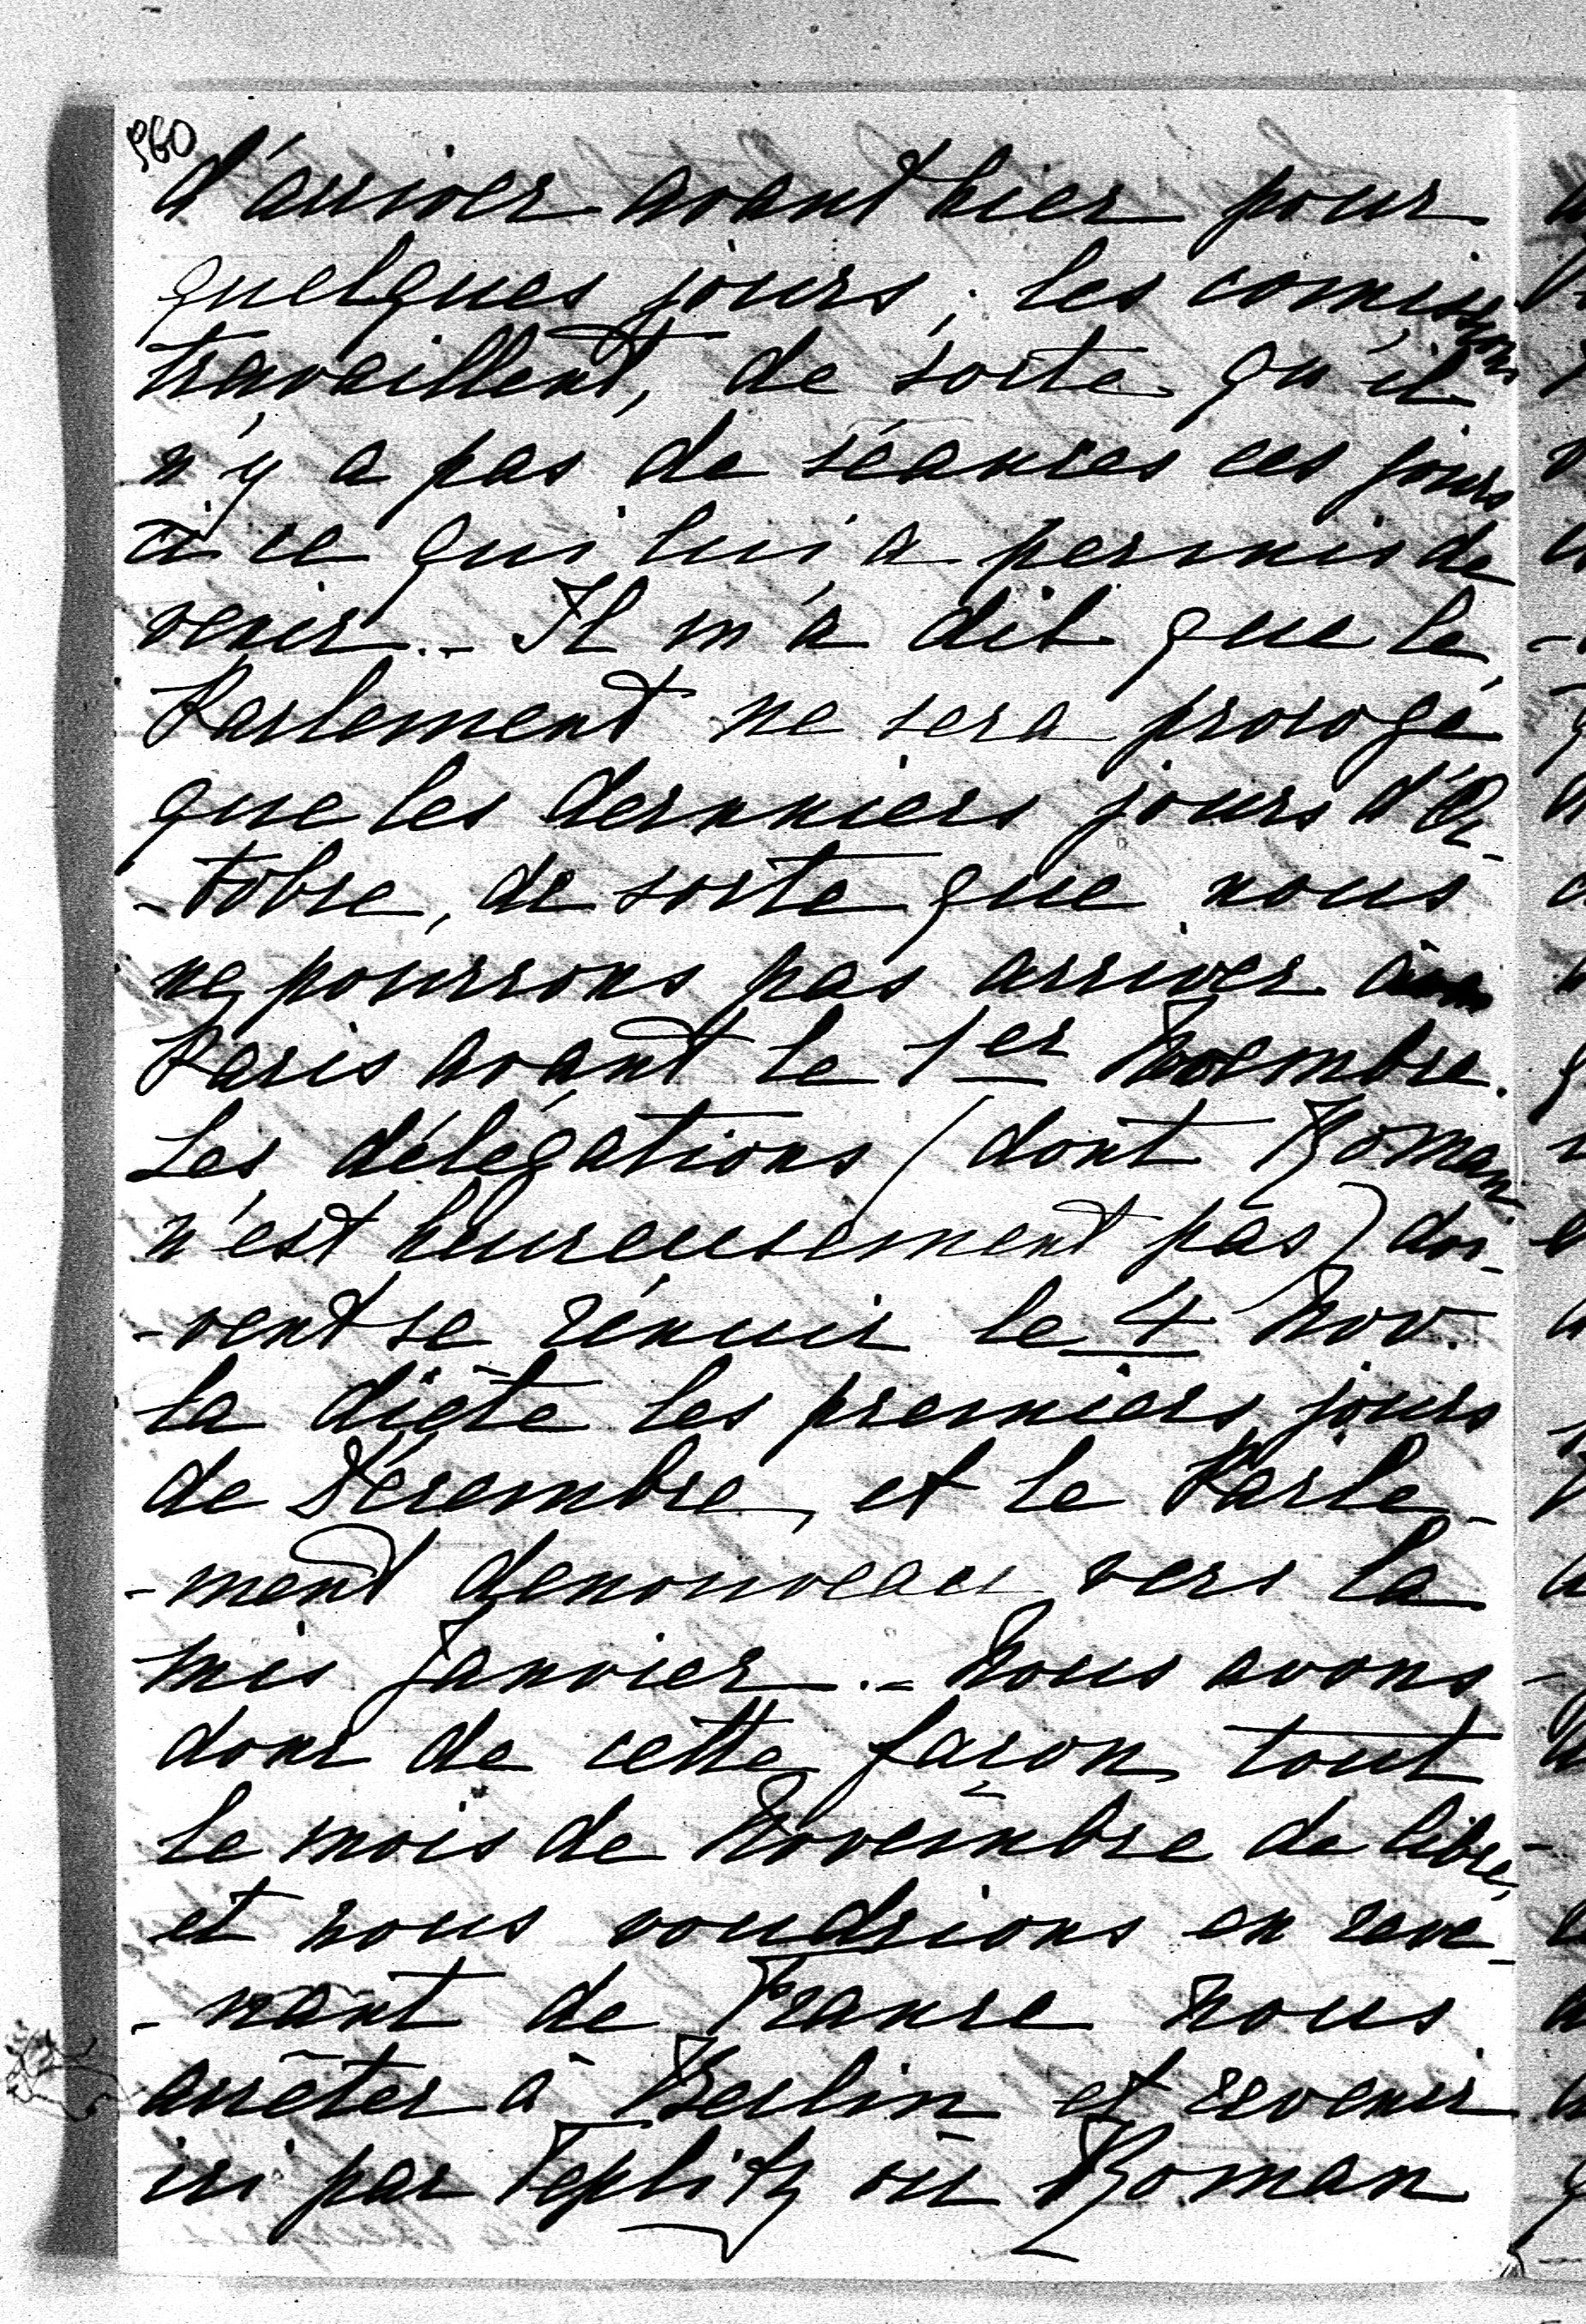 960
d'arriver avant hier pour
quelques jours; les comissions
travaillent, de sorte qu'il
n'y a pas de séances ces jours
ci ce qui lui a permis de
venir.- Il m'a dit que le
Parlement ne sera prorogé
que les dernniers jours d'Oc-
-tobre, de sorte que nous
ne pourrons pas arriver à
Paris avant le 1er Novembre.
Les délégations (dont Roman
n'est heureusement pas) doi-
-vent se réunir le 4 Nov.
la diète les premiers jours
de Décembre, et le Parle-
-ment denouveau vers la
mis Janvier.- Nous avons
donc de cette façon tout
le mois de Novembre de libre,
et nous voudrions en reve-
-nant de France nous
arrêter à Berlin et revenir
ici par Teplitz où Roman